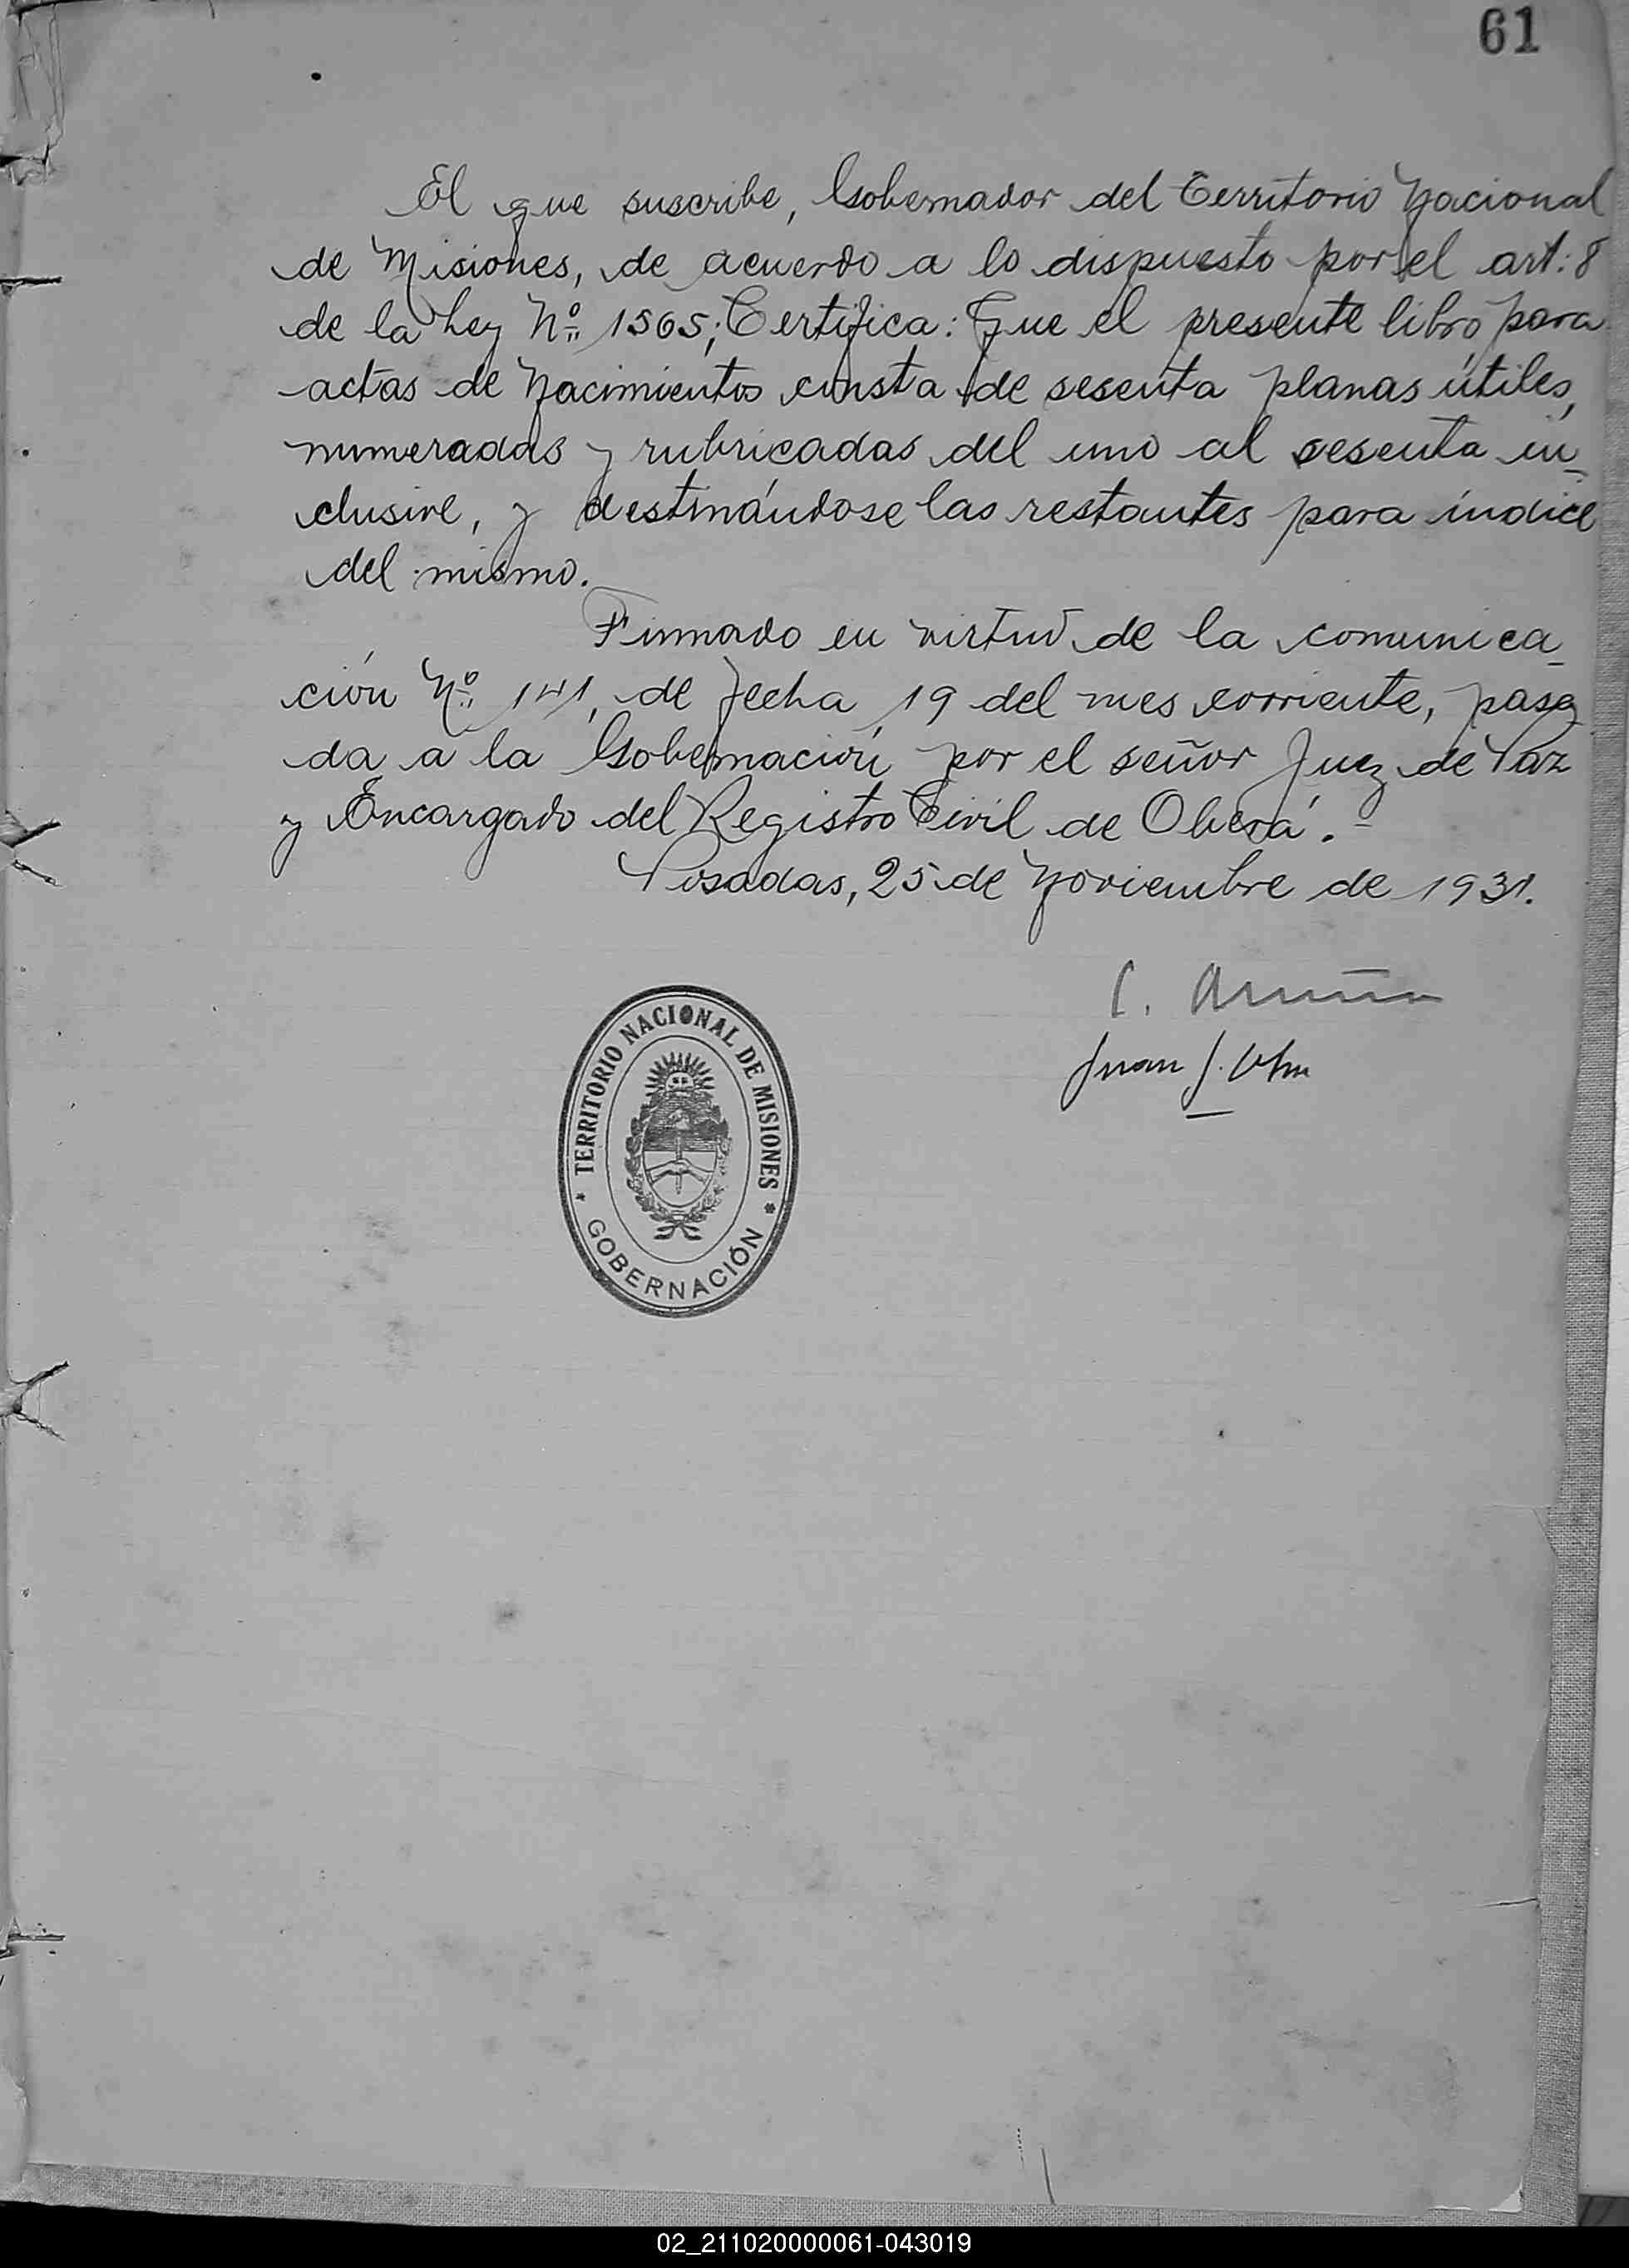 61
El que suscribe, Gobernador del Territorio Nacional
de Misiones, de acuerdo a lo dispuesto por el art: 8
de la Ley Nº 1565; Certifica: Que el presente libro para
actas de Nacimientos consta de sesenta planas útiles,
numeradas y rubricadas del uno al sesenta in-
clusive, y destinándose las restantes para índice
del mismo.
Firmado en virtud de la comunica-
ción Nº 141, de fecha 19 del mes corriente, pasa-
da a la Gobernación por el señor Juez de Paz
y Encargado del Registro Civil de Oberá.-
Posadas, 25 de Noviembre de 1931.
C.
Juan J.
TERRITORIO NACIONAL DE MISIONES
GOBERNACIÓN
02_211020000061-043019